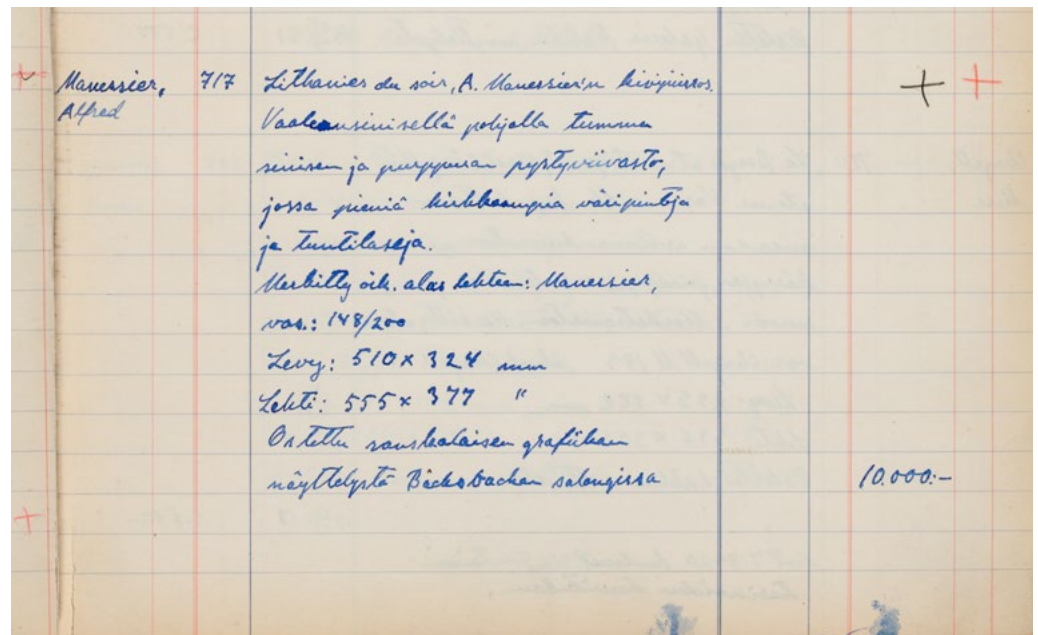 Manessier, 717 Lithanies du soir, A. Manessier'n kivipiirros.
Alfred
Vaaleansinisellä pohjalla tumman
sinisen ja purppuran pystyviivasto,
jossa pieniä kirkkaampia väripintoja
ja tuntilaseja.
Merkitty oik. alas lehteen: Manessier,
vas.: 148/200
Levy: 510 x 324 mm
Lehti: 555 x 377 "
Ostettu ranskalaisen grafiikan
näyttelystä Bäcksbackan salongissa 10.000:-